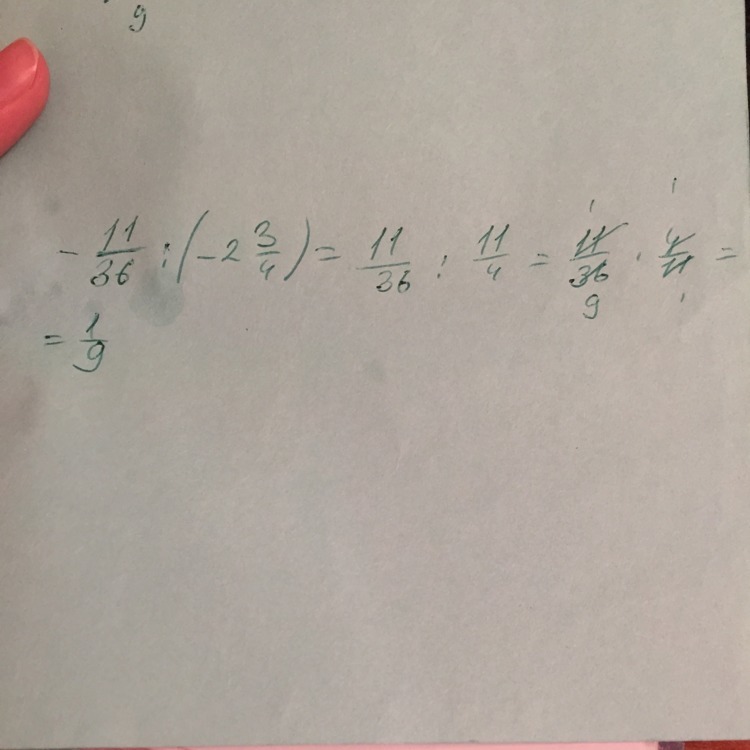 9
- 11/36 : (-2 3/4) = 11/36 : 11/4 = 11/36 · 4/11 =
1 1
9 1
= 1/9